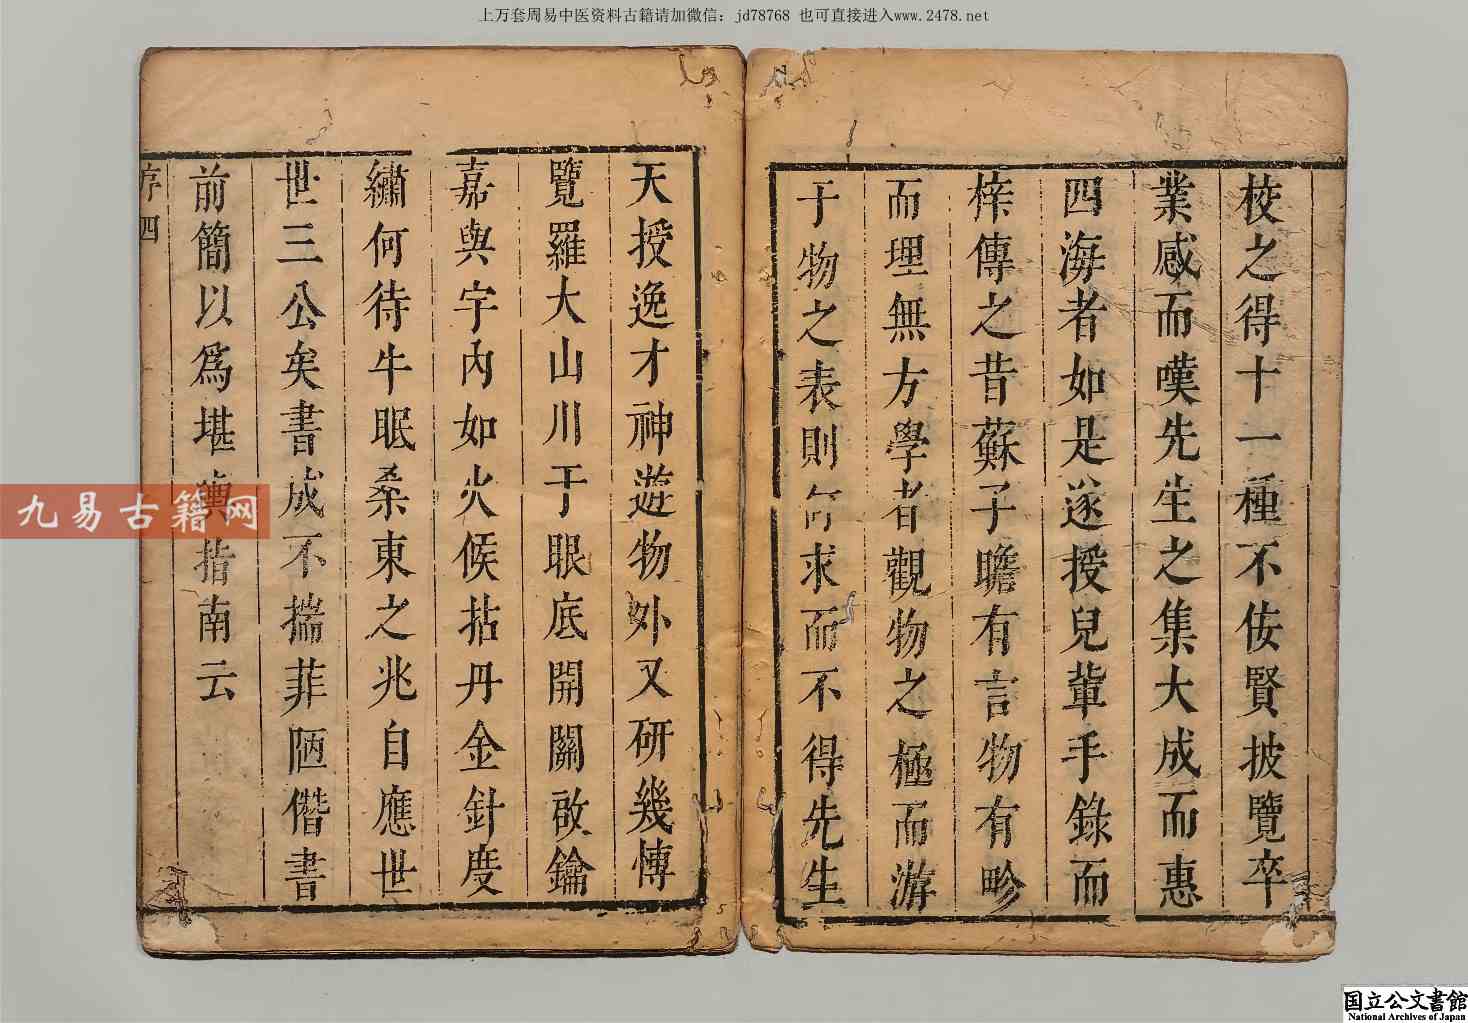 上万套周易中医资料古籍请加微信：jd78768 也可直接进入www.2478.net
校之得十一種不佞賢披覽卒
業感而嘆先生之集大成而惠
四海者如是遂授兒輩手錄而
梓傳之昔蘇子瞻有言物有畛
而理無方學者觀物之極而游
于物之表則何求而不得先生
天授逸才神遊物外又研幾博
覽羅大山川于眼底開關啟鑰
嘉與宇內如火候拈丹金針度
繡何待牛眠桑東之兆自應世
世三公矣書成不揣菲陋僭書
前簡以爲堪輿指南云
序 四
九易古籍网
国立公文書館
National Archives of Japan